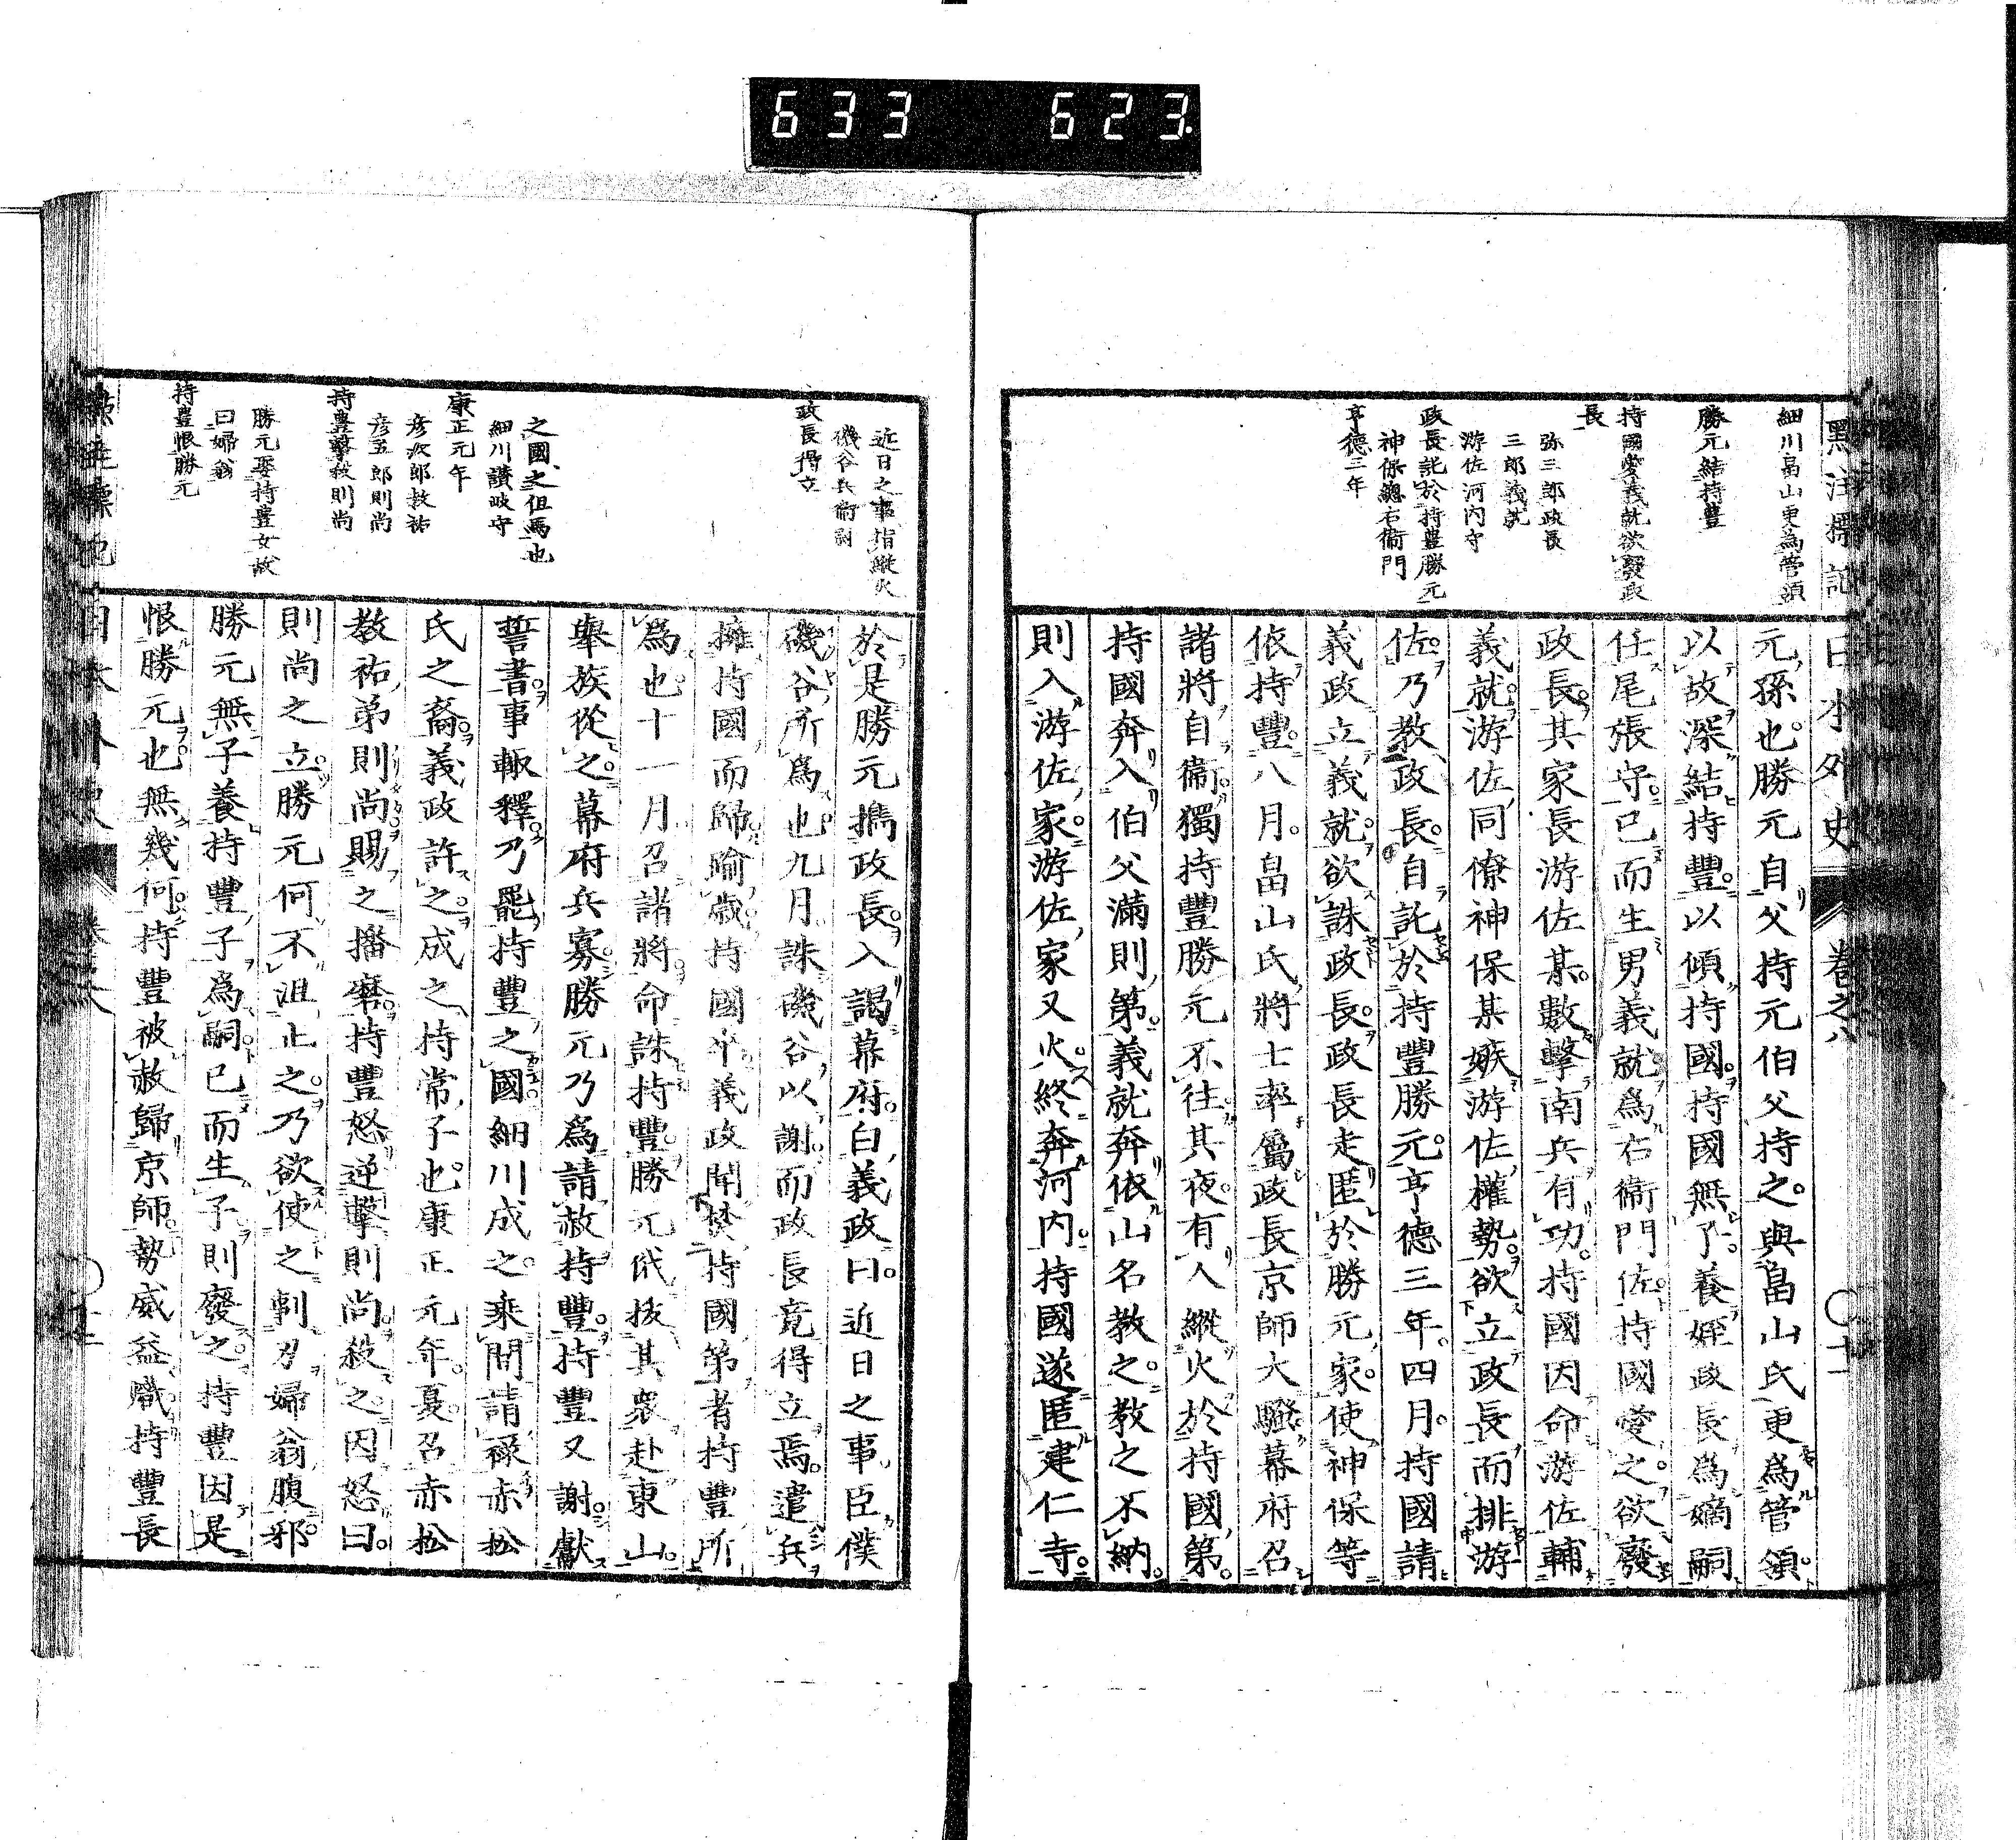 633 623
日本外史
巻之八
細川畠山更為管領
勝元結持豊
持國愛義就欲廢政
長
弥三郎政長
三郎義就
游佐河内守
政長託於持豊勝元
神保總右衞門
亨德三年
元孫也。勝元自父持元伯父持之。與畠山氏更爲管領。
以故深結持豐。以傾持國。持國無子。養姪政長爲嫡嗣
任尾張守。已而生男義就。爲右衞門佐。持國愛之。欲廢
政長。其家長游佐某。數擊南兵有功。持國因命游佐輔
義就。游佐同僚神保某嫉游佐權勢。欲立政長而排游
佐。乃教政長。自託於持豐勝元。亨德三年。四月。持國請
義政立義就。欲誅政長。政長走匿於勝元家。使神保等
依持豐。八月。畠山氏將士率屬政長京師大騷。幕府召
諸將自衞。獨持豐勝元不往。其夜。有人縱火於持國第。
持國奔入伯父滿則第。義就奔依山名教之。教之不納。
則入游佐家。游佐家又火。終奔河内。持國遂匿建仁寺。
近日之事指縱火
磯谷兵衞嗣
政長得立
之國之但馬也
細川讃岐守
康正元年
彦次郎教祐
彦五郎則尚
持豊擊殺則尚
勝元娶持豊女故
曰婦翁
持豊恨勝元
於是勝元攜政長。入謁幕府。白義政曰。近日之事。臣僕
磯谷所爲也。九月。誅磯谷以謝。而政長竟得立焉。遣兵
擁持國而歸。踰歲持國卒。義政聞焚持國第者持豐所
爲也。十一月。召諸將。命誅持豐。勝元佯拔其衆赴東山。
擧族從之。幕府兵寡。勝元乃爲請赦持豐。持豐又謝。獻
誓書。事輙釋。乃罷持豐之國。細川成之。乘間請祿赤松
氏之裔。義政許之。成之持常子也。康正元年。夏。召赤松
教祐弟則尚。賜之播磨。持豐怒逆擊則尚。殺之。因怒曰。
則尚之立。勝元何不沮止之。乃欲使之剚刃婦翁腹邪。
勝元無子。養持豐子爲嗣。已而生子。則廢之。持豐因是
恨勝元也。無幾何。持豐被赦歸京師。勢威益熾。持豐長